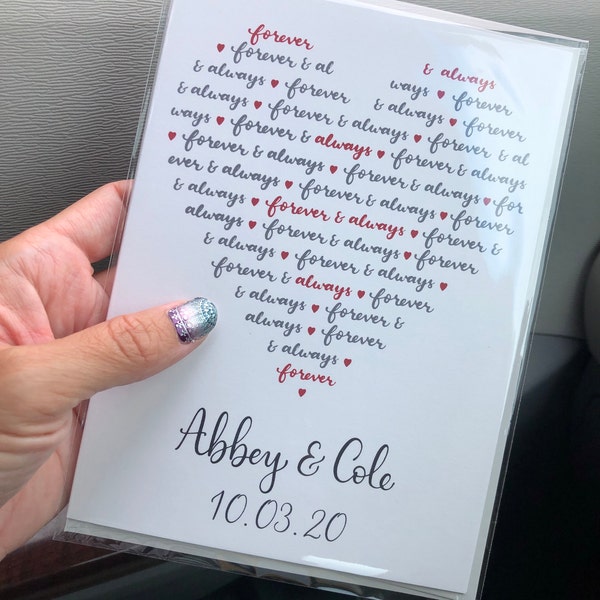 forever
♥ forever & al & always
& always ♥ forever ways ♥ forever
& always ♥ forever & always ♥ forever
ways ♥ forever & always ♥ forever & al
♥ forever & always ♥ forever & always
ever & always ♥ forever & always ♥ for
& always ♥ forever & always ♥ forever
always ♥ forever & always ♥ forever &
& always ♥ forever & always ♥
forever & always ♥ forever
& always ♥ forever &
always ♥ forever
& always ♥
forever
♥
Abbey & Cole
10.03.20